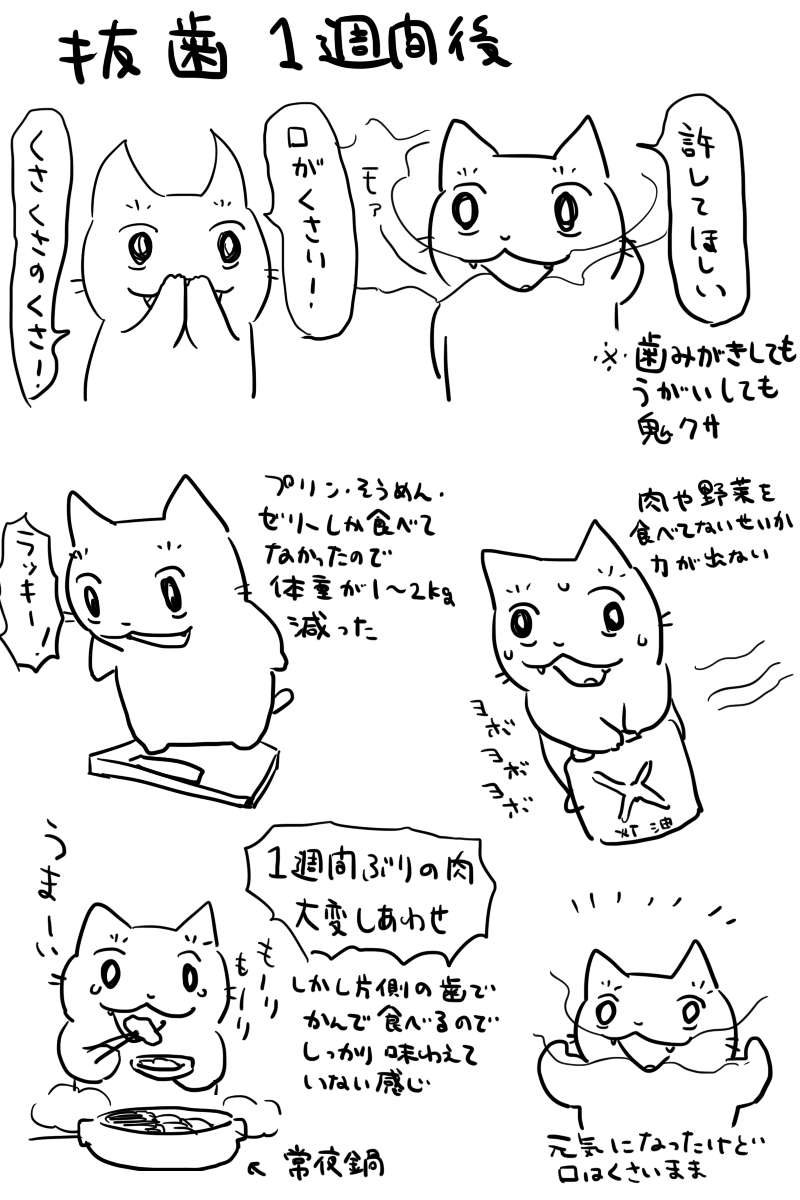 抜歯 1週間後
許してほしい
モァ
口がくさい!
くさくさのくさー!
※歯みがきしても
うがいしても
鬼クサ
プリン・そうめん・
ゼリーしか食べて
なかったので
体重が1〜2kg
減った
ラッキー!
肉や野菜を
食べてないせいか
力が出ない
ヨボ
ヨボ
ヨボ
灯油
1週間ぶりの肉
大変しあわせ
うまーい
もーり
もーり
しかし片側の歯で
かんで食べるので
しっかり味わえて
いない感じ
↖常夜鍋
元気になったけど
口はくさいまま